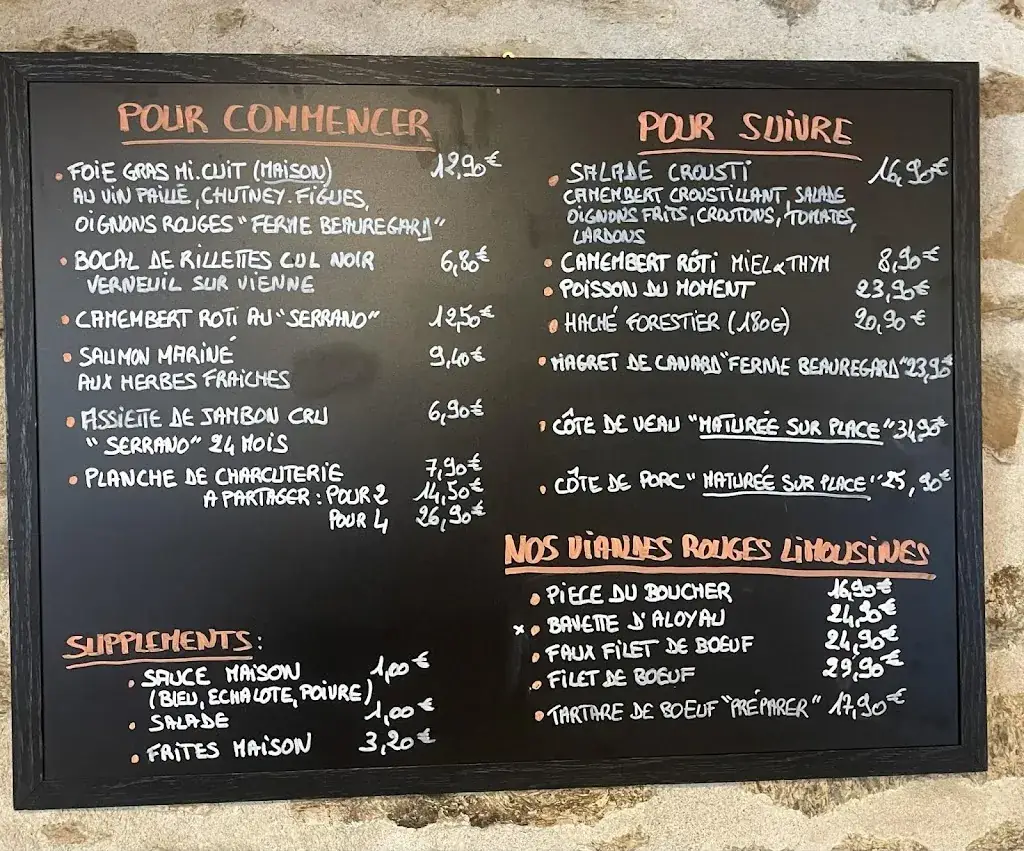 POUR COMMENCER
• FOIE GRAS MI.CUIT (MAISON) 12,90€
AU VIN PAILLÉ, CHUTNEY.FIGUES,
OIGNONS ROUGES "FERME BEAUREGARD"
• BOCAL DE RILLETTES CUL NOIR 6,80€
VERNEUIL SUR VIENNE
• CAMEMBERT ROTI AU "SERRANO" 12,50€
• SAUMON MARINÉ 9,40€
AUX HERBES FRAICHES
• ASSIETTE DE JAMBON CRU 6,90€
"SERRANO" 24 MOIS
• PLANCHE DE CHARCUTERIE 7,90€
A PARTAGER : POUR 2 14,50€
POUR 4 26,90€
SUPPLEMENTS:
• SAUCE MAISON 1,00€
(BLEU, ECHALOTE, POIVRE)
• SALADE 1,00€
• FRITES MAISON 3,20€
POUR SUIVRE
• SALADE CROUSTI 16,90€
CAMEMBERT CROUSTILLANT, SALADE
OIGNONS FRITS, CROUTONS, TOMATES,
LARDONS
• CAMEMBERT RÔTI MIEL & THYM 8,90€
• POISSON DU MOMENT 23,90€
• HACHÉ FORESTIER (180G) 20,90€
• MAGRET DE CANARD "FERME BEAUREGARD" 23,90€
• CÔTE DE VEAU "MATURÉE SUR PLACE" 34,90€
• CÔTE DE PORC "MATURÉE SUR PLACE" 25,90€
NOS VIANDES ROUGES LIMOUSINES
• PIECE DU BOUCHER 16,90€
x • BAVETTE D'ALOYAU 24,90€
• FAUX FILET DE BOEUF 24,90€
• FILET DE BOEUF 29,90€
• TARTARE DE BOEUF "PRÉPARER" 17,90€